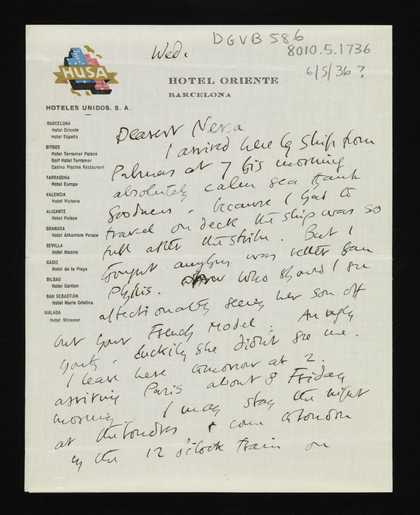 DGVB 586
Wed.
8010.5.1736
6/5/36?
HUSA
HOTEL ORIENTE
BARCELONA
HOTELES UNIDOS, S. A.
BARCELONA
Hotel Oriente
Hotel España
SITGES
Hotel Terramar Palace
Golf Hotel Terramar
Casino Piscina Restaurant
TARRAGONA
Hotel Europa
VALENCIA
Hotel Victoria
ALICANTE
Hotel Palace
GRANADA
Hotel Alhambra Palace
SEVILLA
Hotel Madrid
CADIZ
Hotel de la Playa
BILBAO
Hotel Carlton
SAN SEBASTIAN
Hotel Maria Cristina
MALAGA
Hotel Miramar
Dearest Nessa
I arrived here by ship from
Palmas at 7 this morning
absolutely calm sea thank
goodness, because I had to
travel on deck the ship was so
full after the strike. But I
thought anything was better than
Phyllis. who should I see
affectionately seeing her son off
but your French Model. An ugly
youth, luckily she didn't see me.
I leave here tomorrow at 2.
arriving Paris about 8 Friday
morning I may stay the night
at the Londres & come to London
by the 12 o'clock train on